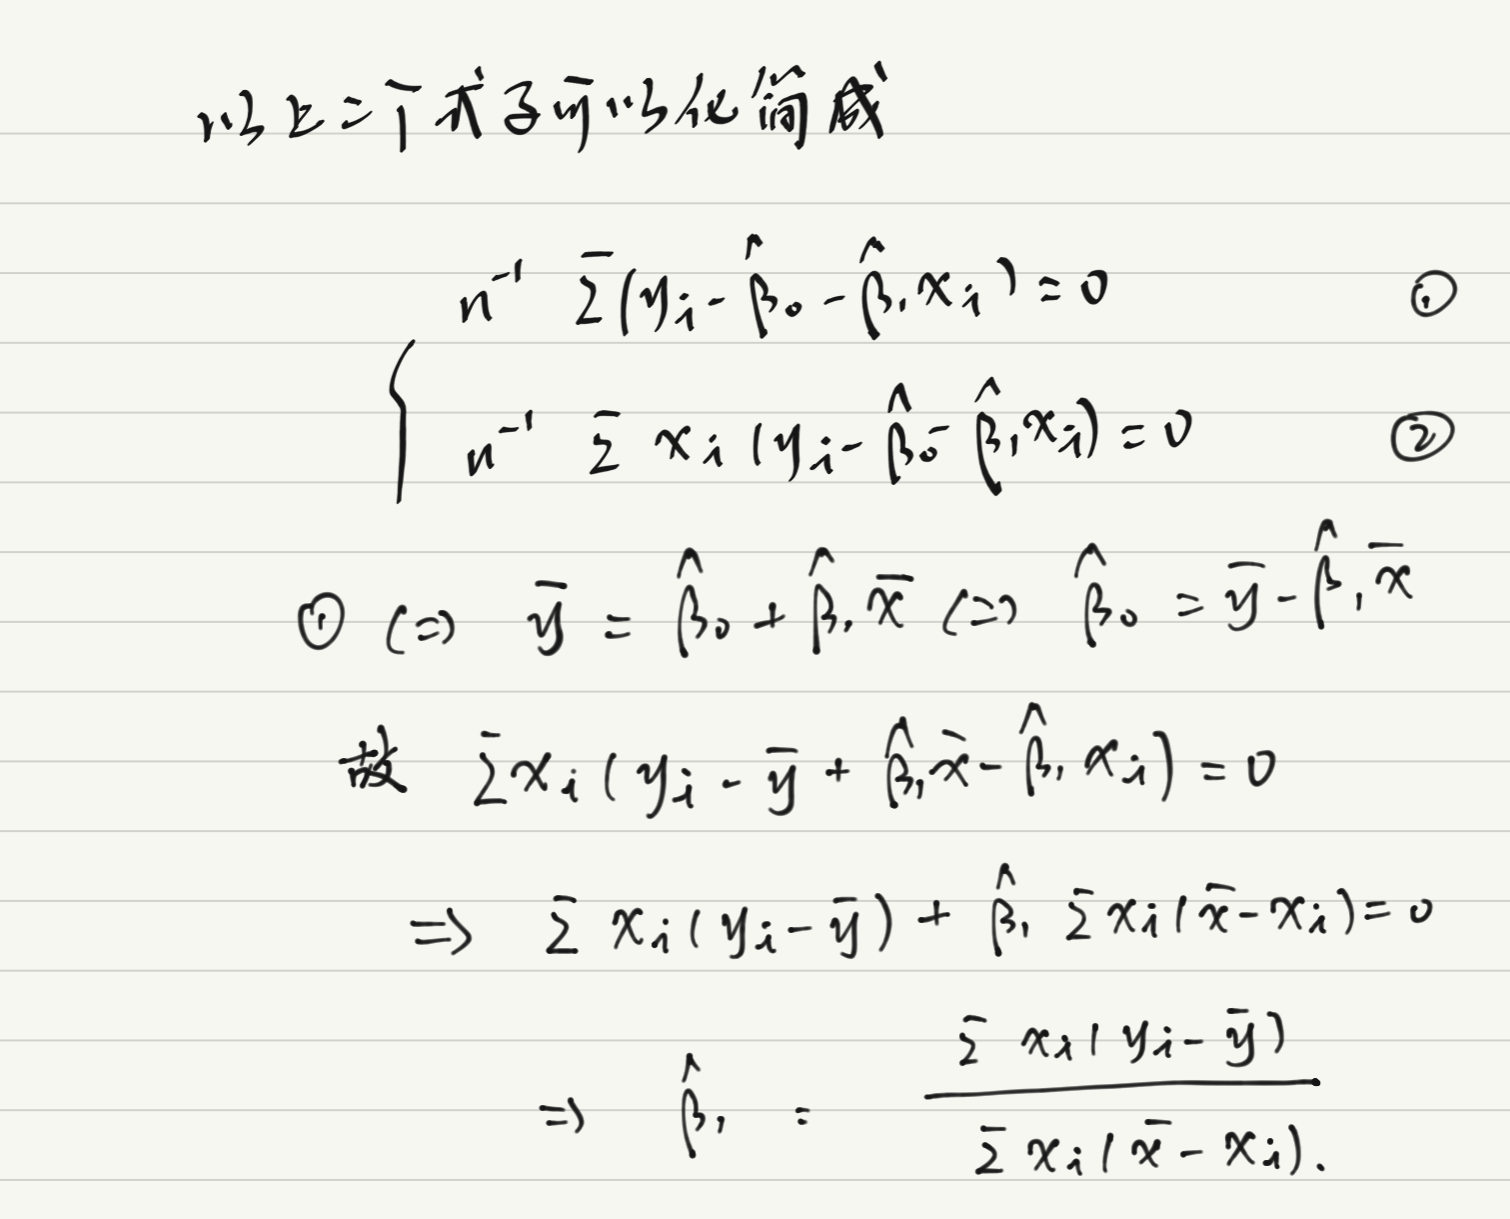 以上二个式子可以化简成
n⁻¹ Σ(yᵢ - β̂₀ - β̂₁xᵢ) = 0 ①
{ n⁻¹ Σ xᵢ(yᵢ - β̂₀ - β̂₁xᵢ) = 0 ②
① (=) ȳ = β̂₀ + β̂₁x̄ (=) β̂₀ = ȳ - β̂₁x̄
故 Σxᵢ(yᵢ - ȳ + β̂₁x̄ - β̂₁xᵢ) = 0
⇒ Σ xᵢ(yᵢ - ȳ) + β̂₁ Σ xᵢ(x̄ - xᵢ) = 0
Σ xᵢ(yᵢ - ȳ)
⇒ β̂₁ = ―――
Σ xᵢ(x̄ - xᵢ).